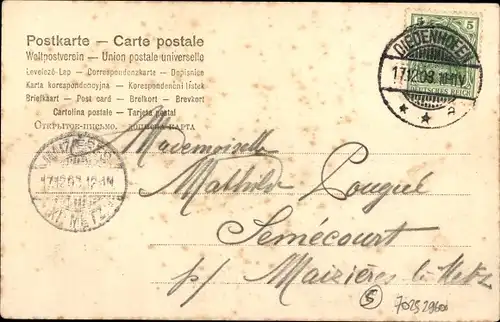 Postkarte — Carte postale
Weltpostverein — Union postale universelle
Levelező-Lap — Correspondenzkarte — Dopisnice
Karta korespondencyjna — Korespondenční lístek
Briefkaart — Post card — Brefkort — Brevkort
Cartolina postale — Tarjeta postal
Открытое письмо.
5 5
DEUTSCHES REICH
DIEDENHOFEN
17.12.03. 10-11V
* * a
17.12.03. 12-1N
KR. METZ
Mademoiselle
Mathilde Pougué
Semécourt
p/ Maizières lez Metz
S